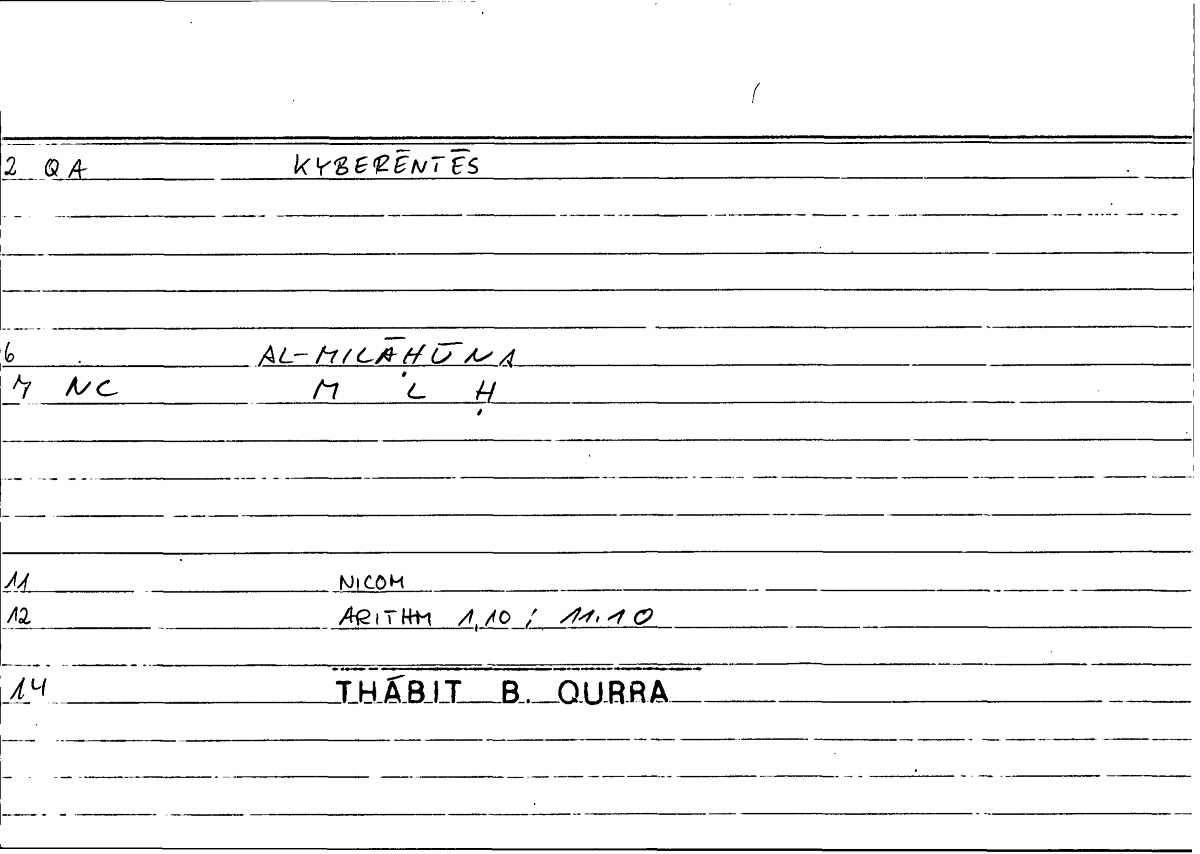 2 QA KYBERĒNTĒS
6 AL-MILĀḤŪNA
7 NC M L Ḥ
11 NICOM
12 ARITHM 1,10; 11.10
14 THĀBIT B. QURRA